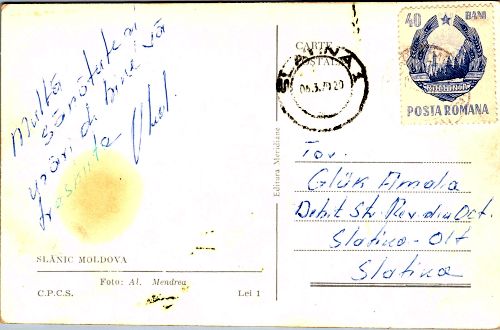 Multă
Sănătate și
urări de bine vă
trasmite
CARTE
POȘTALĂ
SLATINA 1
06.3.70 20
40 BANI
POSTA ROMANA
Editura Meridiane
Tov.
Glük Amalia
Debit Str. Rev. din Oct.
Slatina - Olt
Slatina
SLĂNIC MOLDOVA
Foto: Al. Mendrea
C.P.C.S. Lei 1